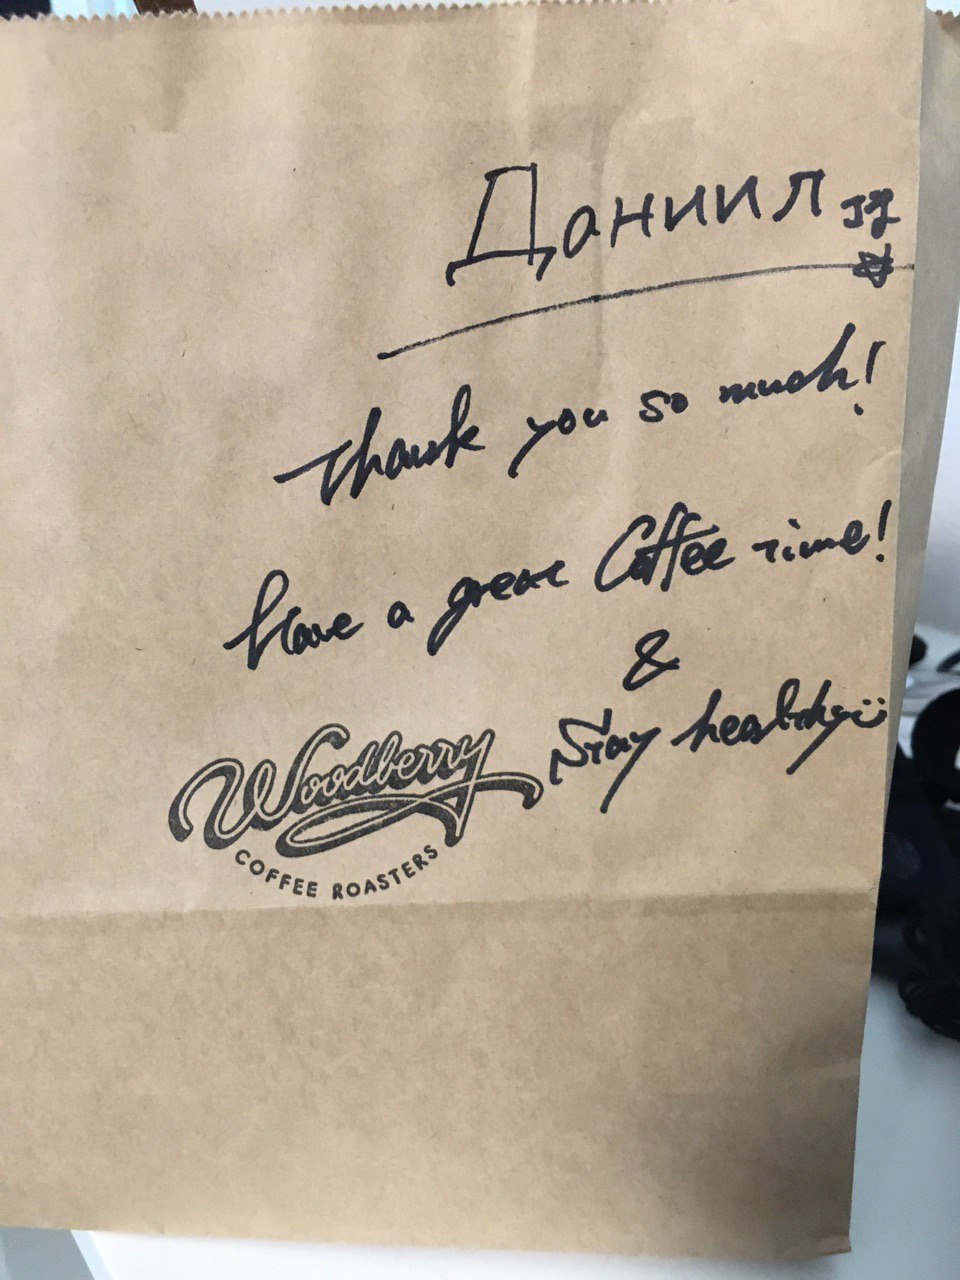 Даниил 様
Thank you so much!
have a great Coffee time!
&
Stay healthy
Woodberry
COFFEE ROASTERS